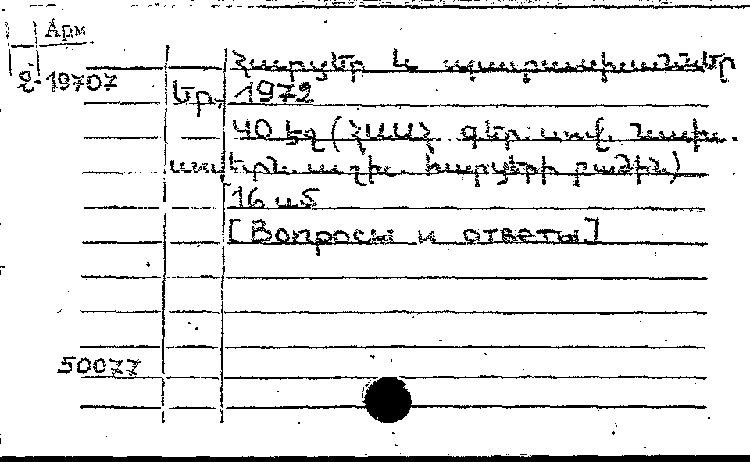 Арм
Հ-19707
Հարցեր և պատասխաններ
Եր., 1972
40 էջ (ՀՍՍՀ գեր. սով. նախ.
աշխ. հարցերի բաժին)
16 սմ
[Вопросы и ответы.]
50077